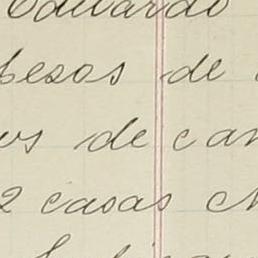 Eduardo
pesos de
de can
2 casas